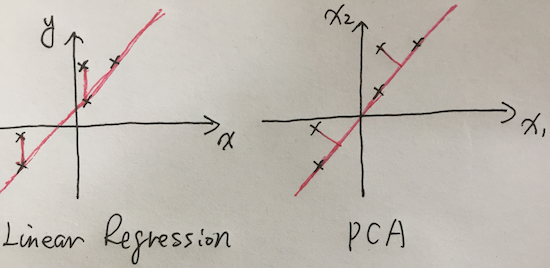 y
x
Linear Regression
x₂
x₁
PCA